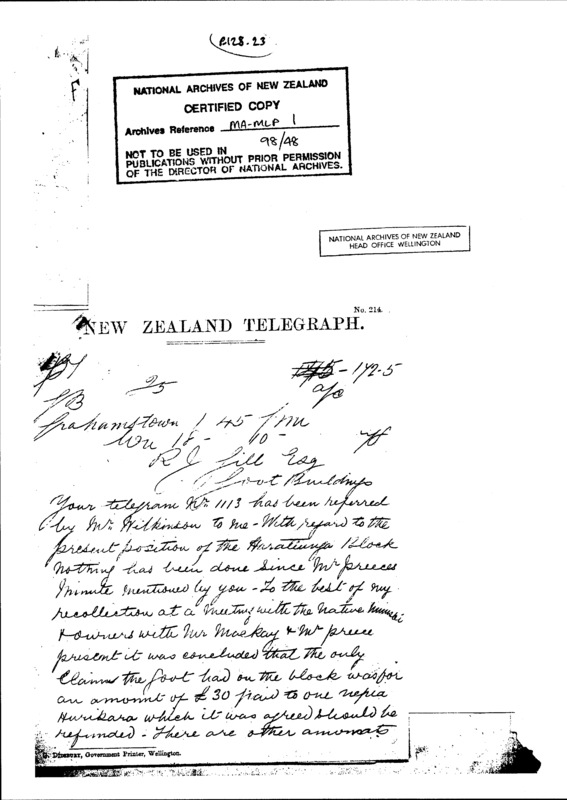 R128.23
F
NATIONAL ARCHIVES OF NEW ZEALAND
CERTIFIED COPY
Archives Reference MA-MLP 1
98/48
NOT TO BE USED IN
PUBLICATIONS WITHOUT PRIOR PERMISSION
OF THE DIRECTOR OF NATIONAL ARCHIVES.
NATIONAL ARCHIVES OF NEW ZEALAND
HEAD OFFICE WELLINGTON
No. 214.
NEW ZEALAND TELEGRAPH.
- 172-5
25
Grahamstown 1 45 pm
Wn 18 - 10 -
R J Gill Esq
Govt Buildings
Your telegram No 1113 has been referred
by Mr Wilkinson to me - With regard to the
present position of the Harataunga Block
nothing has been done since Mr Preeces
minute mentioned by you - To the best of my
recollection at a meeting with the Native
owners with Mr Mackay & Mr Preece
present it was concluded that the only
Claim the Govt had on the block was for
an amount of £30 paid to one nepia
Hurikara which it was agreed should be
refunded - There are other amounts
Didsbury, Government Printer, Wellington.